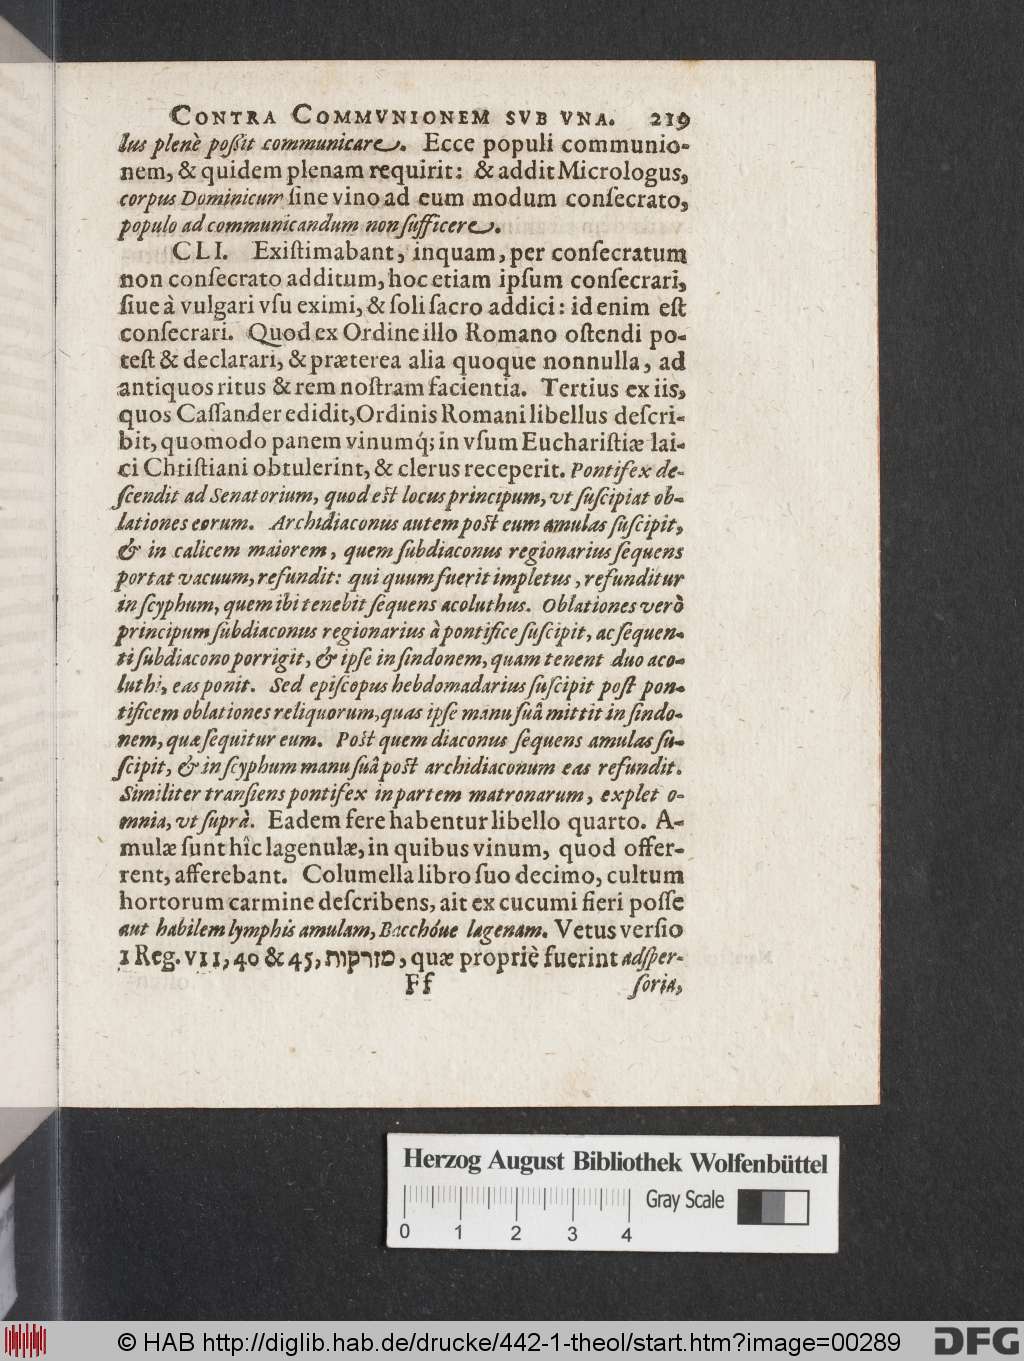 CONTRA COMMVNIONEM SVB VNA. 219
lus plenè poſſit communicare. Ecce populi communio-
nem, & quidem plenam requirit: & addit Micrologus,
corpus Dominicum ſine vino ad eum modum conſecrato,
populo ad communicandum non ſufficere.
CLI. Exiſtimabant, inquam, per conſecratum
non conſecrato additum, hoc etiam ipſum conſecrari,
ſiue à vulgari vſu eximi, & ſoli ſacro addici: id enim eſt
conſecrari. Quod ex Ordine illo Romano oſtendi po-
teſt & declarari, & præterea alia quoque nonnulla, ad
antiquos ritus & rem noſtram facientia. Tertius ex iis,
quos Caſſander edidit, Ordinis Romani libellus deſcri-
bit, quomodo panem vinumq́; in vſum Euchariſtiæ lai-
ci Chriſtiani obtulerint, & clerus receperit. Pontifex de-
ſcendit ad Senatorium, quod eſt locus principum, vt ſuſcipiat ob-
lationes eorum. Archidiaconus autem poſt eum amulas ſuſcipit,
& in calicem maiorem, quem ſubdiaconus regionarius ſequens
portat vacuum, refundit: qui quum fuerit impletus, refunditur
in ſcyphum, quem ibi tenebit ſequens acoluthus. Oblationes verò
principum ſubdiaconus regionarius à pontifice ſuſcipit, ac ſequen-
ti ſubdiacono porrigit, & ipſe in ſindonem, quam tenent duo aco-
luthi, eas ponit. Sed epiſcopus hebdomadarius ſuſcipit poſt pon-
tificem oblationes reliquorum, quas ipſe manu ſuâ mittit in ſindo-
nem, quæ ſequitur eum. Poſt quem diaconus ſequens amulas ſu-
ſcipit, & in ſcyphum manu ſuâ poſt archidiaconum eas refundit.
Similiter tranſiens pontifex in partem matronarum, explet o-
mnia, vt ſuprà. Eadem fere habentur libello quarto. A-
mulæ ſunt hîc lagenulæ, in quibus vinum, quod offer-
rent, afferebant. Columella libro ſuo decimo, cultum
hortorum carmine deſcribens, ait ex cucumi fieri poſſe
aut habilem lymphis amulam, Bacchóue lagenam. Vetus verſio
1 Reg. VII, 40 & 45, מזרקות, quæ propriè fuerint adſper-
Ff ſoria,
Herzog August Bibliothek Wolfenbüttel
Gray Scale
0 1 2 3 4
© HAB http://diglib.hab.de/drucke/442-1-theol/start.htm?image=00289
DFG